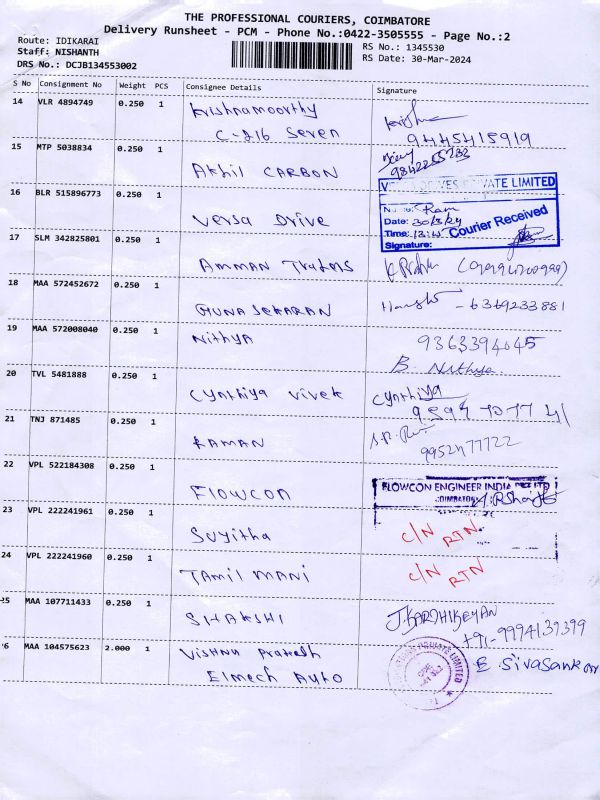 THE PROFESSIONAL COURIERS, COIMBATORE
Delivery Runsheet - PCM - Phone No.:0422-3505555 - Page No.:2
Route: IDIKARAI
RS No.: 1345530
Staff: NISHANTH
RS Date: 30-Mar-2024
DRS No.: DCJB134553002
S No Consignment No Weight PCS Consignee Details Signature
14 VLR 4894749 0.250 1 Krishnamoorthy
C-216 Seven 9445415919
15 MTP 5038834 0.250 1
Akhil CARBON
16 BLR 515896773 0.250 1 PRIVATE LIMITED
Ram
Date: 30/3/24
Versa Drive Time: Courier Received
Signature:
17 SLM 342825801 0.250 1
Amman
18 MAA 572452672 0.250 1
GUNASEKARAN - 6369233881
19 MAA 572008040 0.250 1 Nithya 9363394045
B. Nithya
20 TVL 5481888 0.250 1
Cynthiya Vivek Cynthiya
21 TNJ 871485 0.250 1
RAMAN 9952477722
22 VPL 522184308 0.250 1
FLOWCON FLOWCON ENGINEER INDIA
23 VPL 222241961 0.250 1
Suyitha C/N RTN
24 VPL 222241960 0.250 1
TAMIL MANI C/N RTN
25 MAA 107711433 0.250 1
SHAKSHI J.KARTHIKEYAN
+91-9994139399
26 MAA 104575623 2.000 1 Vishnu Prakash
Elmech Auto PRIVATE LIMITED E. Sivasankar